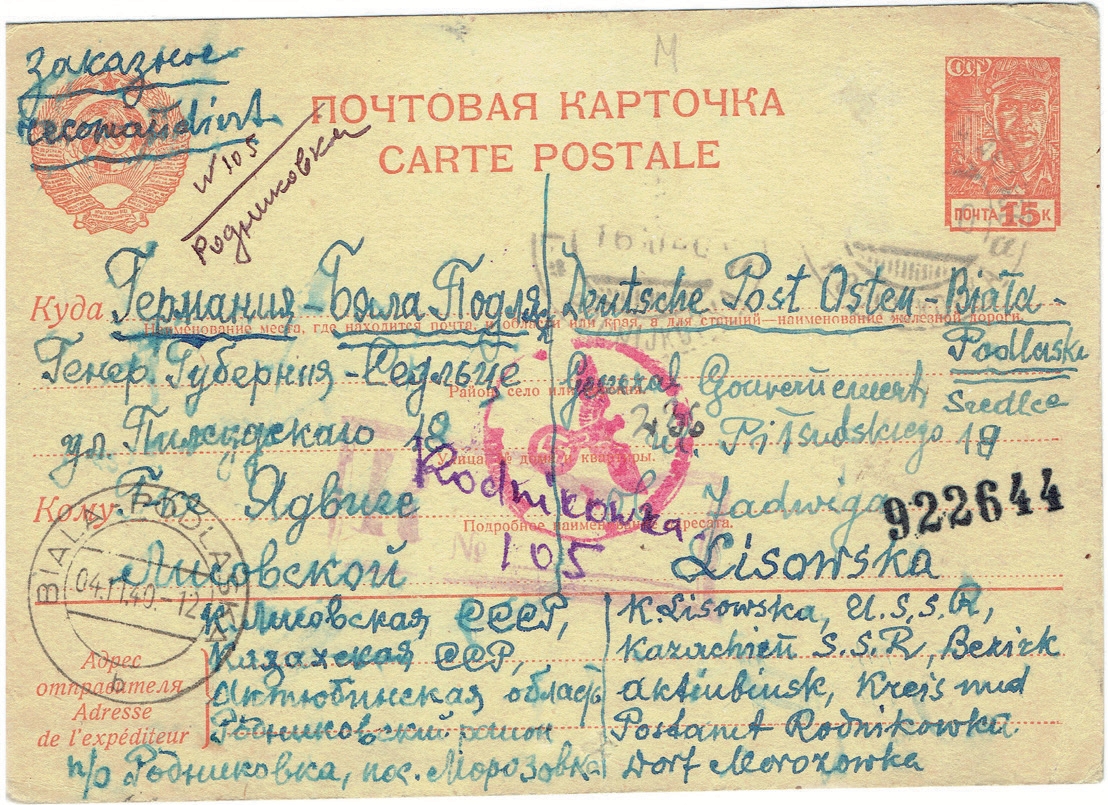 Заказное
recomandiert
N 105
Родниковка
М
ПОЧТОВАЯ КАРТОЧКА
CARTE POSTALE
СССР
ПОЧТА 15 К
Куда Германия - Бяла Подля
Наименование места, где находится почта, и области или края, а для станций—наименование железной дороги.
Deutsche Post Osten - Biała-
Podlaska
Генер Губерния - Седльце
General Gouvernement
Siedlce
Район, село или
ул. Пилсудскаго 18
236
ul. Piłsudskiego 18
Улица, № дома и квартиры.
Rodnikowka
105
№
Кому Г-же Ядвиге
Jadwiga
922644
Подробное наименование адресата.
Лисовской
Lisowska
BIALA PODLASKA
04.11.40.-12
b
Адрес
отправителя
Adresse
de l'expéditeur
К. Лисовская СССР,
Казахская ССР,
Актюбинская область
Родниковский район
п/о Родниковка, пос. Морозовка
K. Lisowska, U.S.S.R,
Kazachien S.S.R, Bezirk
Aktiubinsk, Kreis und
Postamt Rodnikowka
Dorf Morozowka